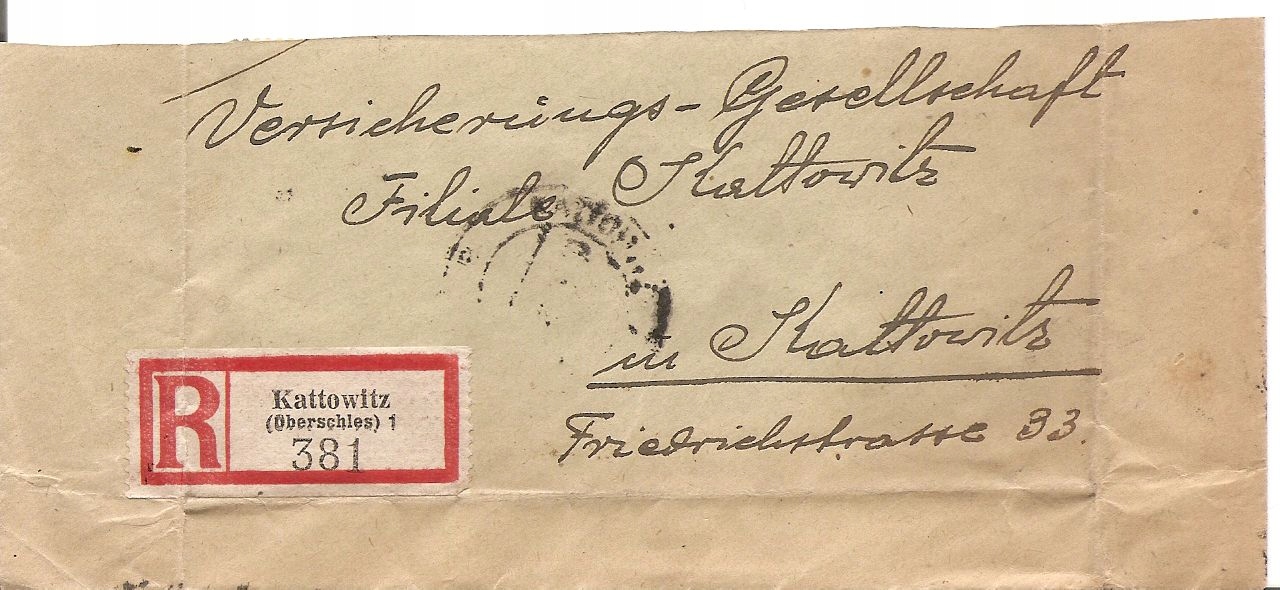 Versicherüngs-Gesellschaft
Filiale Kattowitz
in Kattowitz
Friedrichstrasse 33.
R
Kattowitz
(Oberschles) 1
381